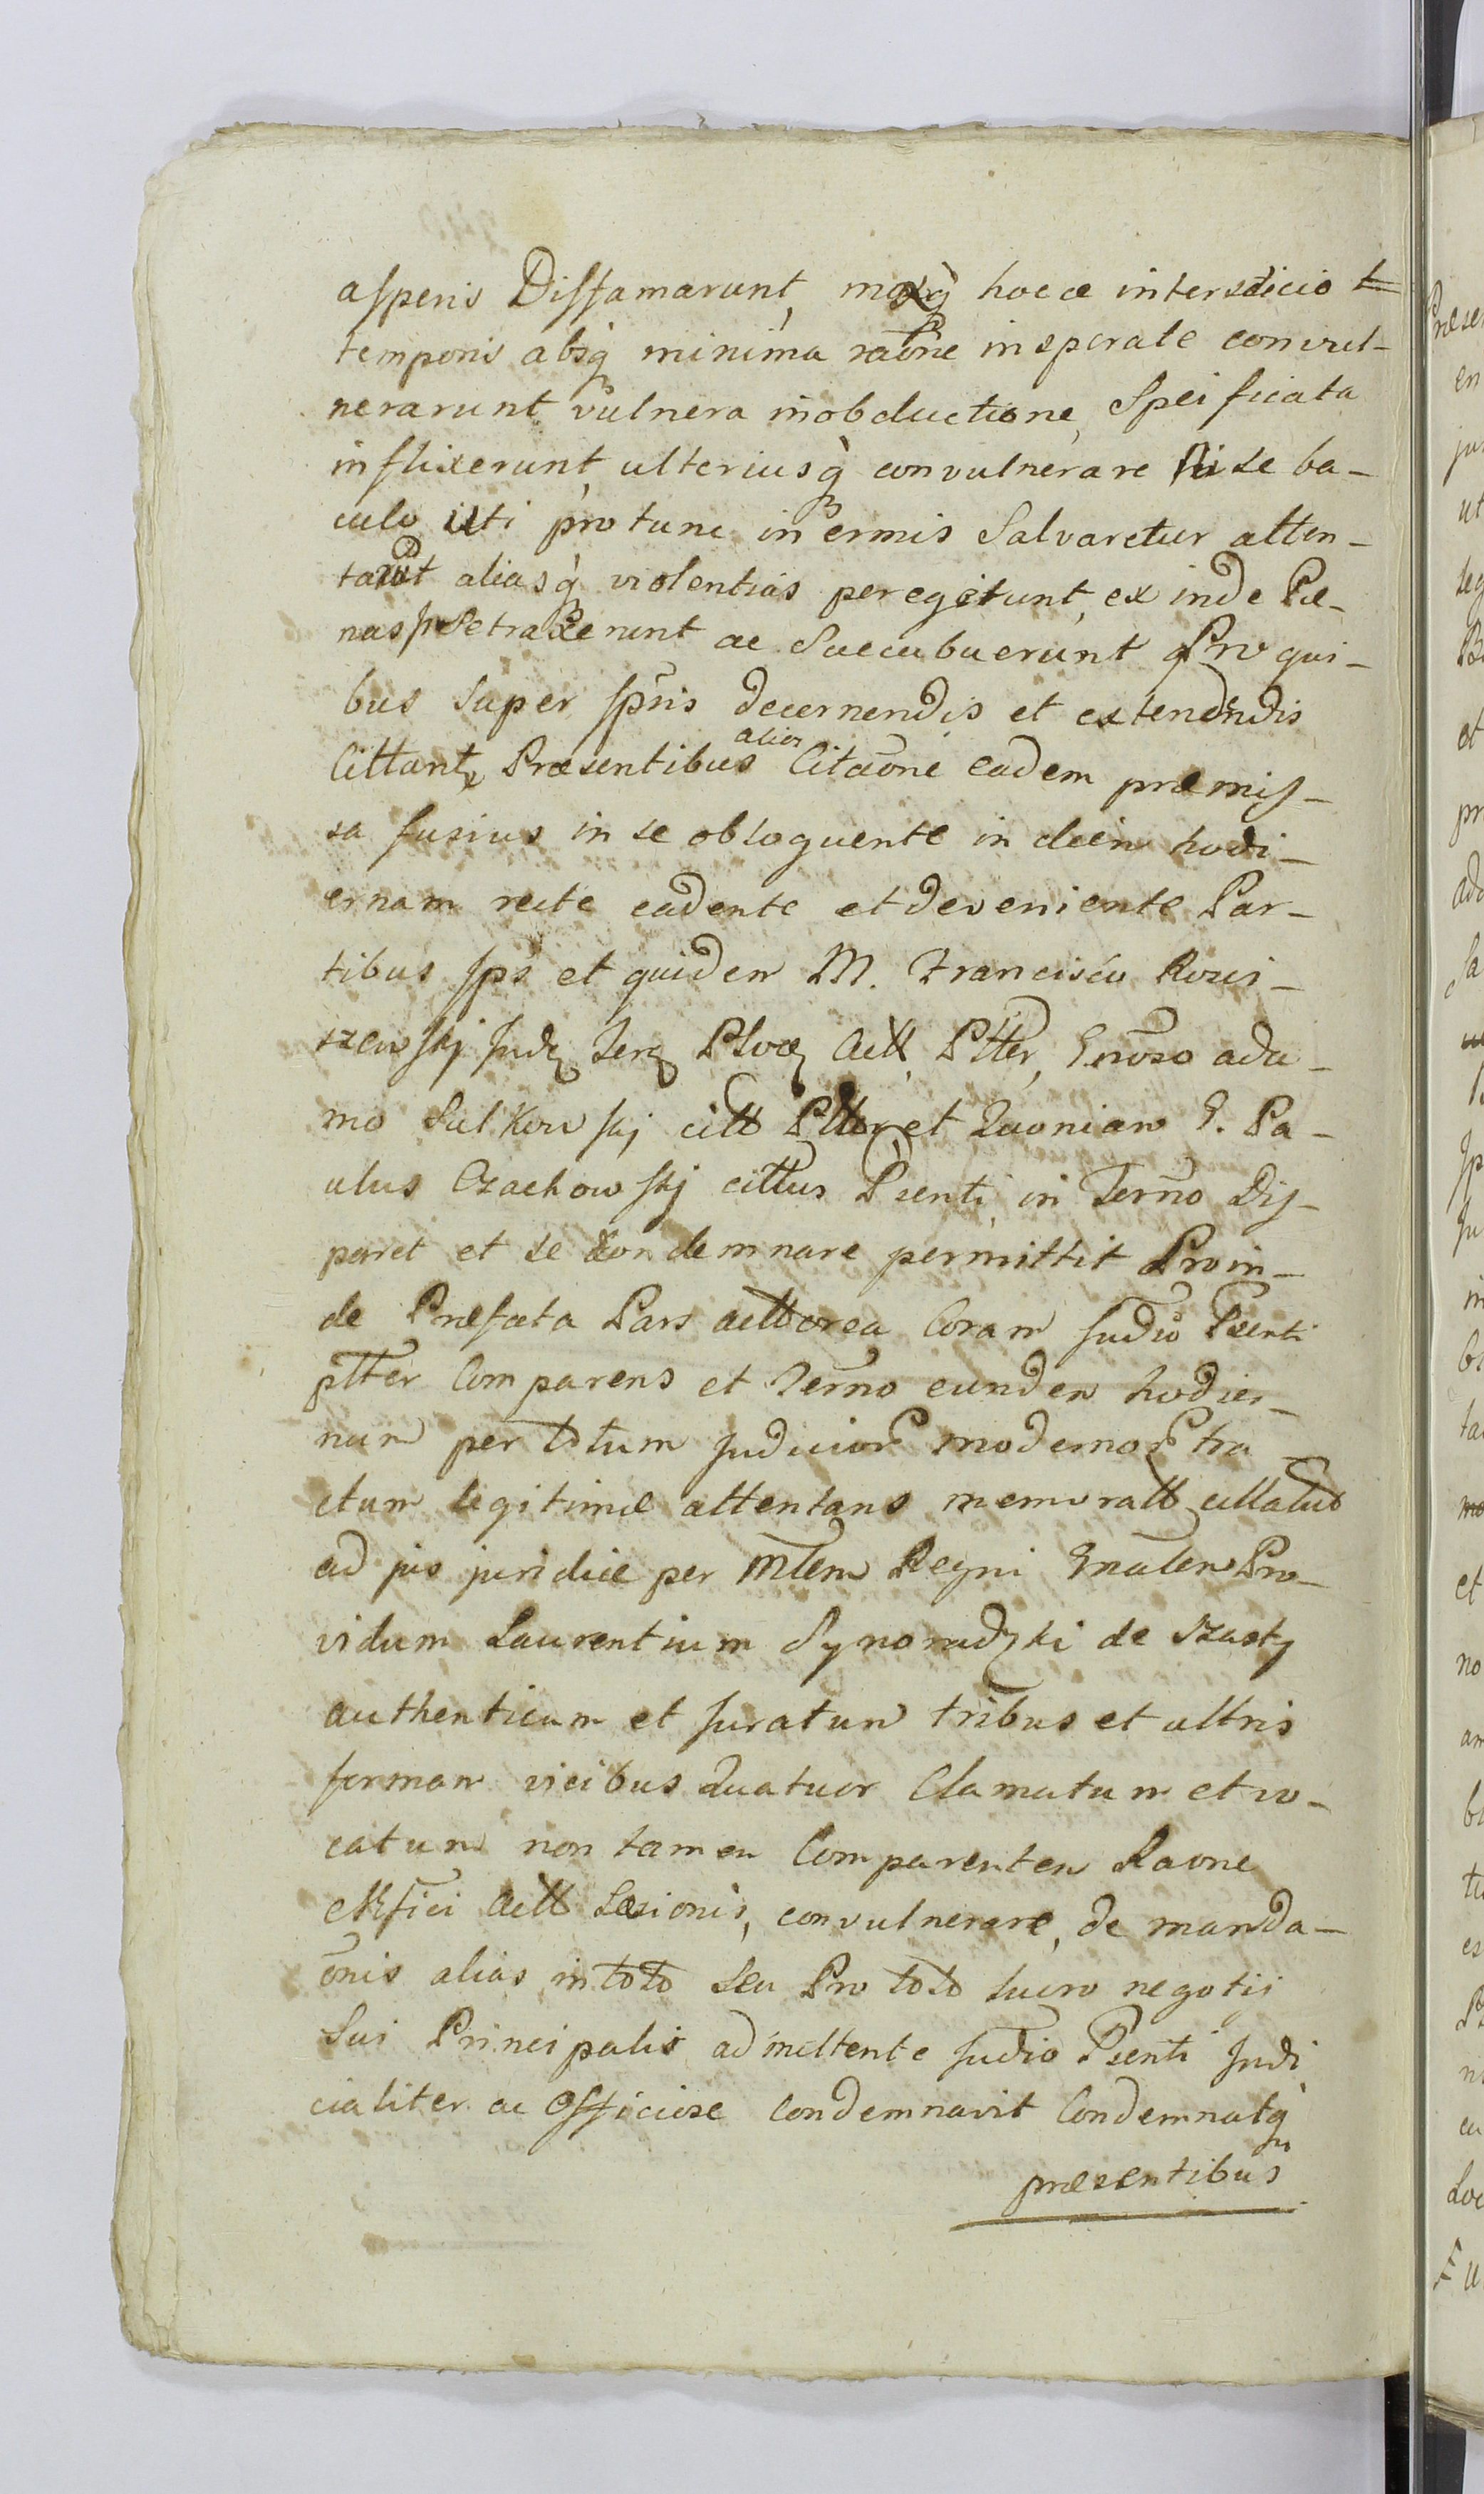 asperis Diffamarunt, moxq̀ hocce intersticio t
temporis absq̀ minima raõne insperate convul-
nerarunt vulnera inobductione, Speificata
inflixerunt, ulteriusq̀ convulnerare Ni se ba-
culo uti protunc inermis Salvaretur atten-
tarũt aliasq̀ violentias peregerunt, ex inde Pæ-
nas p se traxerunt ac Succubuerunt Pro qui-
bus super Ipsis decernendis et extendendis
Cittant Præsentibus alias Citaõne eadem præmis-
sa fusius in se obloquente in diem hodi-
ernam recte cadente et deveniente Par-
tibus Ips et quidem M. Francisco Rosci-
szewskj Judz Terz Ploc Actt, Ptter, Gnoso Ada-
mo Sulkowskj citt Ptter, et Quoniam G. Pa-
ulus Czachowskj cittus Psenti in Termo Dis-
paret et se condemnare permittit Proin-
de Præfata Pars acttorea Coram Judio Psenti
ptter Comparens et Termo eundem hodier-
num per totum Judicior modernor tra-
ctum legitime attentans memoratt cittatũ
ad jus juridice per Mtem Regni Gnalem Pro-
vidum Laurentium Synoradzki de Szasty
authenticum et Juratum tribus et ultris
ferman vicibus Quatuor Clamatum et vo-
catum non tamen Comparentem Raone
Actt Læsionis, convulnerare, de manda-
onis alias in toto seu Pro toto lucro negotii
Sui Principalis admittente Judio Psenti Judi
cialiter ac Officiose Condemnavit Condemnatq̀
præsentibus